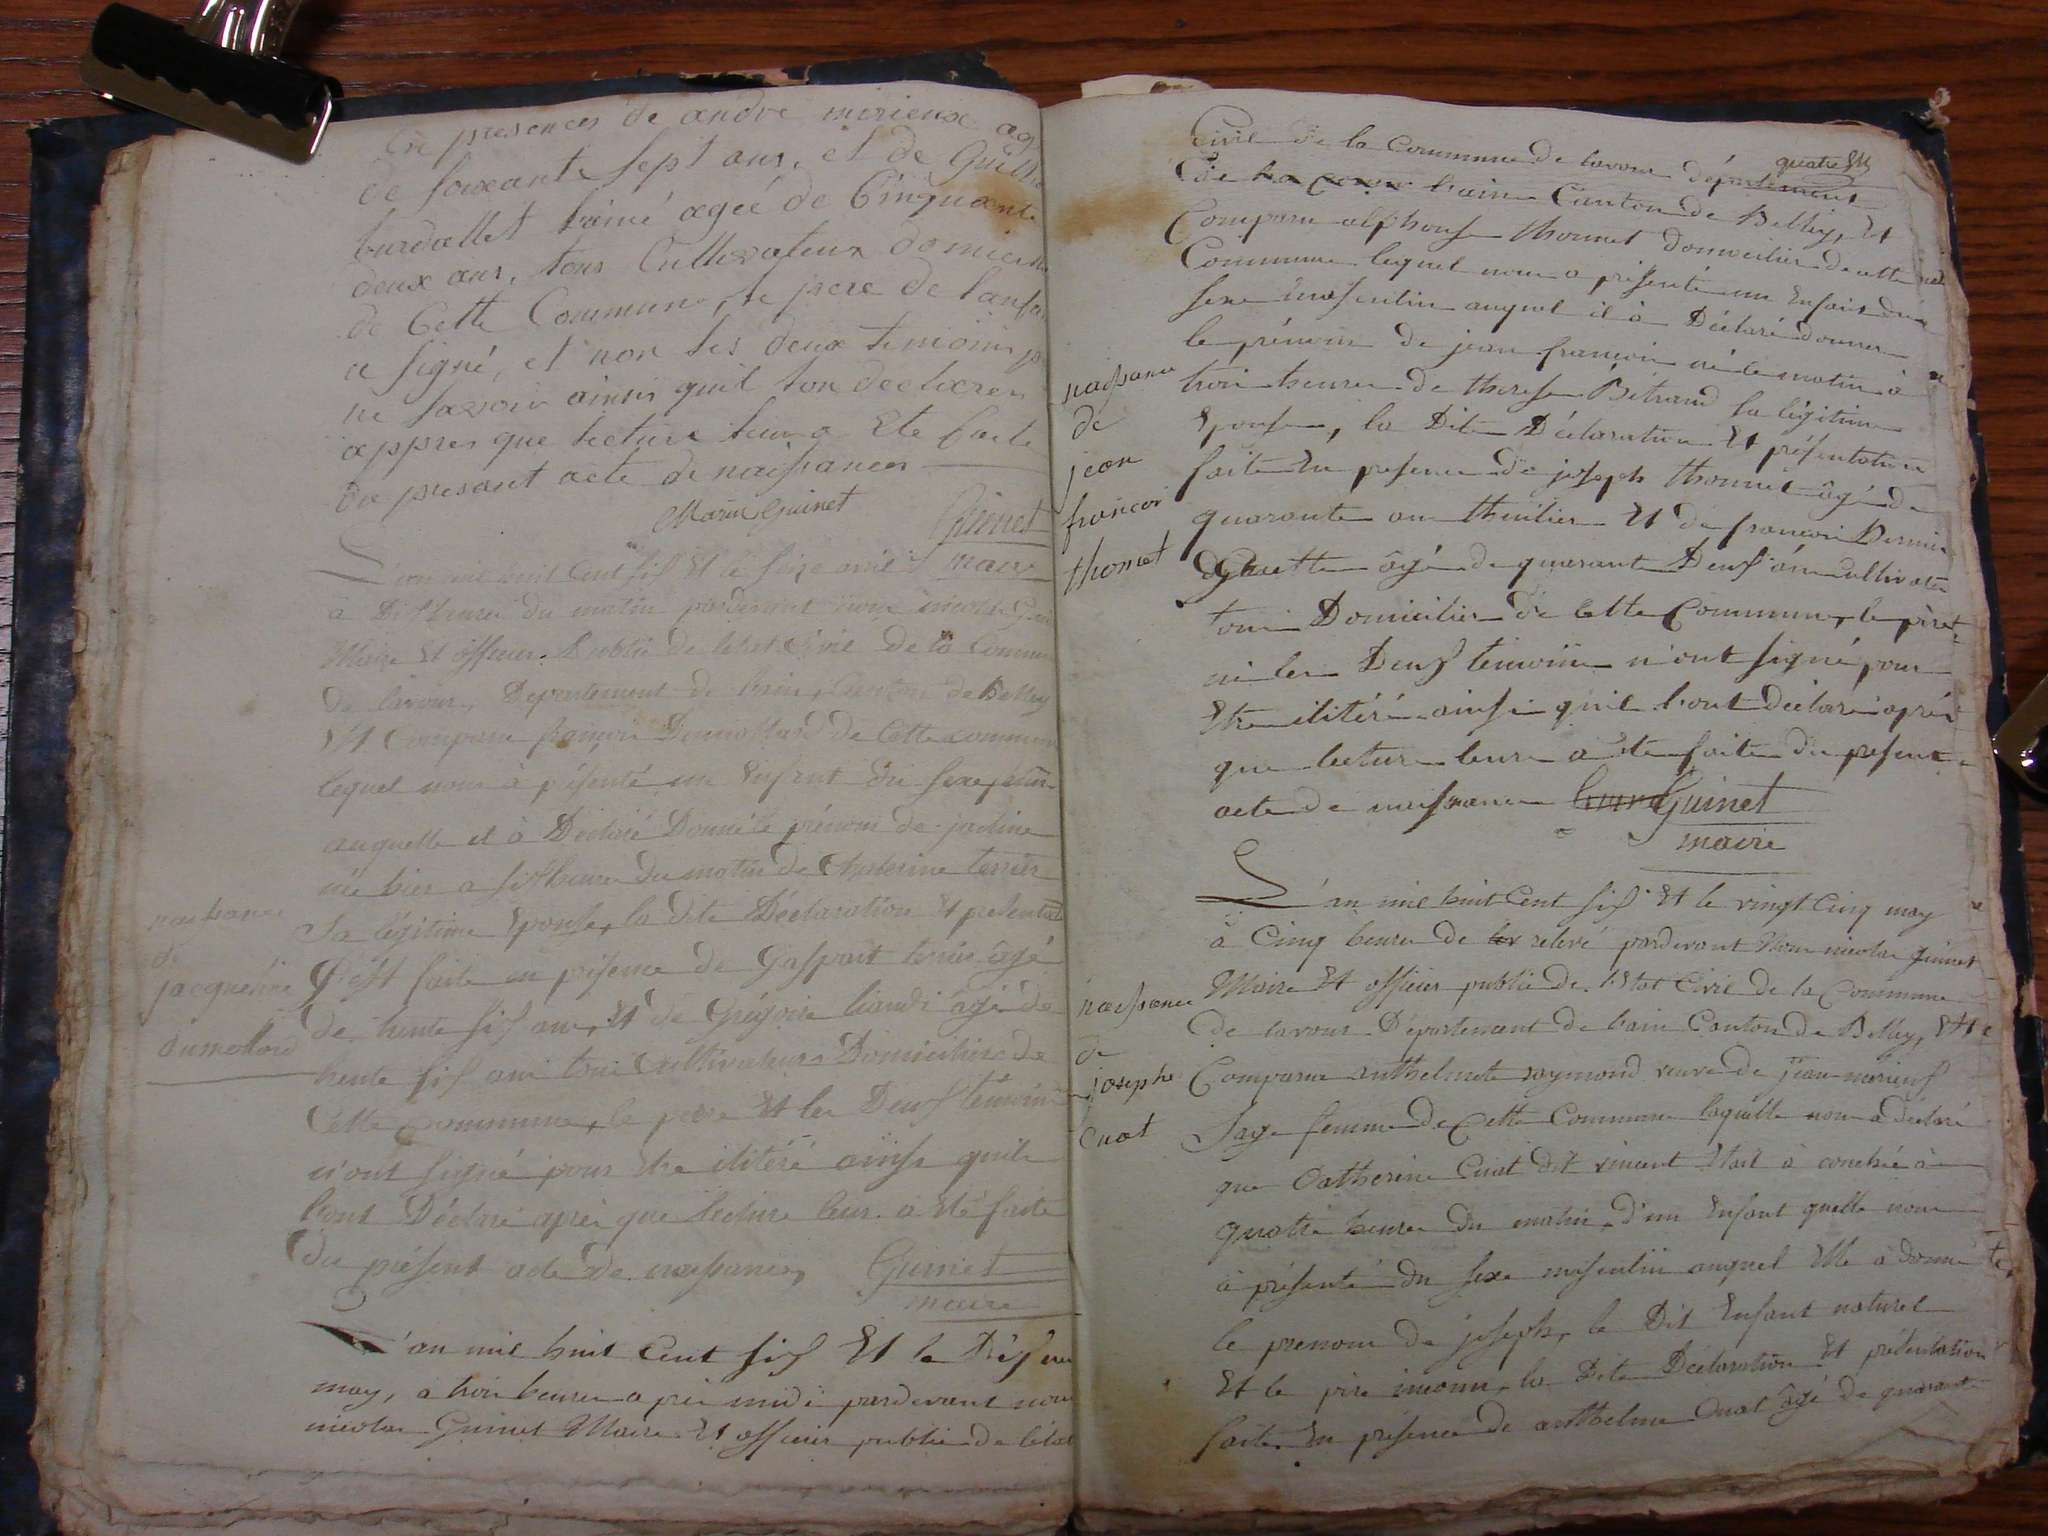 En presences de andré merieux agé
de soixante sept ans, et de
burdallet lainé ageé de Cinquante
deux ans, tous Cultivateur domicilié
de Cette Commune, le pere de lanfan
a signé, et non les deux temoins p
ne savoir ainsis quil lon declarer
appres que lecture leur a Ete faite
du presant acte de naissances
Marin Guinet Guinet
maire
L'an mil huit Cent six Et le seize avril
à Dix heures du matin pardevant nous nicolas Gui
Maire Et officier Public de létat Civil de la Commun
de lavour, Departement de lain, Canton de Belley
Et Comparu francois Dumollard de Cette commune
lequel nous à présenté un Enfant du sexe féminin
auquelle il à Déclaré Donné le prénom de jacline
née hier a six heures du matin de Catherine terrier
Sa légitime Epouse, la dite Déclaration Et présentation
faite en présence de Gaspart terrier âgé
de trente six ans, Et de Grégoire agé de
trente six ans tous Cultivateurs Domiciliers de
Cette commune, le père Et les Deux témoins
n'ont signé pour Etre ilitéré ainsi quils
l'ont Déclaré après que lecture leur a été faite
du présent acte de naissances Guinet
maire
naissance
de
jacqueline
dumollard
L'an mil huit Cent six Et le
may, à trois heures après midi pardevant nous
nicolas Guinet Maire Et officier public de l'état
Civil de la Commune de lavour département
quatre
de lain Canton de Belley, Et
Comparu alphonse thonnet domicilier de cette
Commune lequel nous a présenté un Enfant du
sexe masculin auquel il à Déclaré donner
le prénom de jean françois né le matin à
trois heures de therese Bétrand sa légitime
Epouse, la Dite Déclaration Et présentation
faite En presence de joseph thonnet âgé de
quarante ans thuilier Et de francois
âgé de quarante Deux ans cultivateur
tous Domicilier de Cette Commune, le père
ni les Deux temoins n'ont signé pour
Etre ilitéré ainsi quil l'ont Déclaré après
que lecture leur a été faite du present
acte de naissance Guinet
maire
naissance
de
jean
francois
thonnet
L'an mil huit Cent six Et le vingt Cinq may
à Cinq heures de relevé pardevant Nous nicolas Guinet
Maire Et officier public de l'Etat Civil de la Commune
de lavour Département de lain Canton de Belley, Et
Comparue anthelmette raymond veuve de jean merieux
Sage femme de Cette Commune laquelle nous a déclaré
que Catherine Cuat dit vincent Etait à couchée à
quatre heures du matin, d'un Enfant quelle nous
à présenté du sexe masculin auquel Elle a donné
le prenom de joseph, le Dit Enfant naturel
Et le père inconnu, la Dite Déclaration Et présentation
faite En présence de anthelme Cuat âgé de quarante
naissance
de
joseph
Cuat